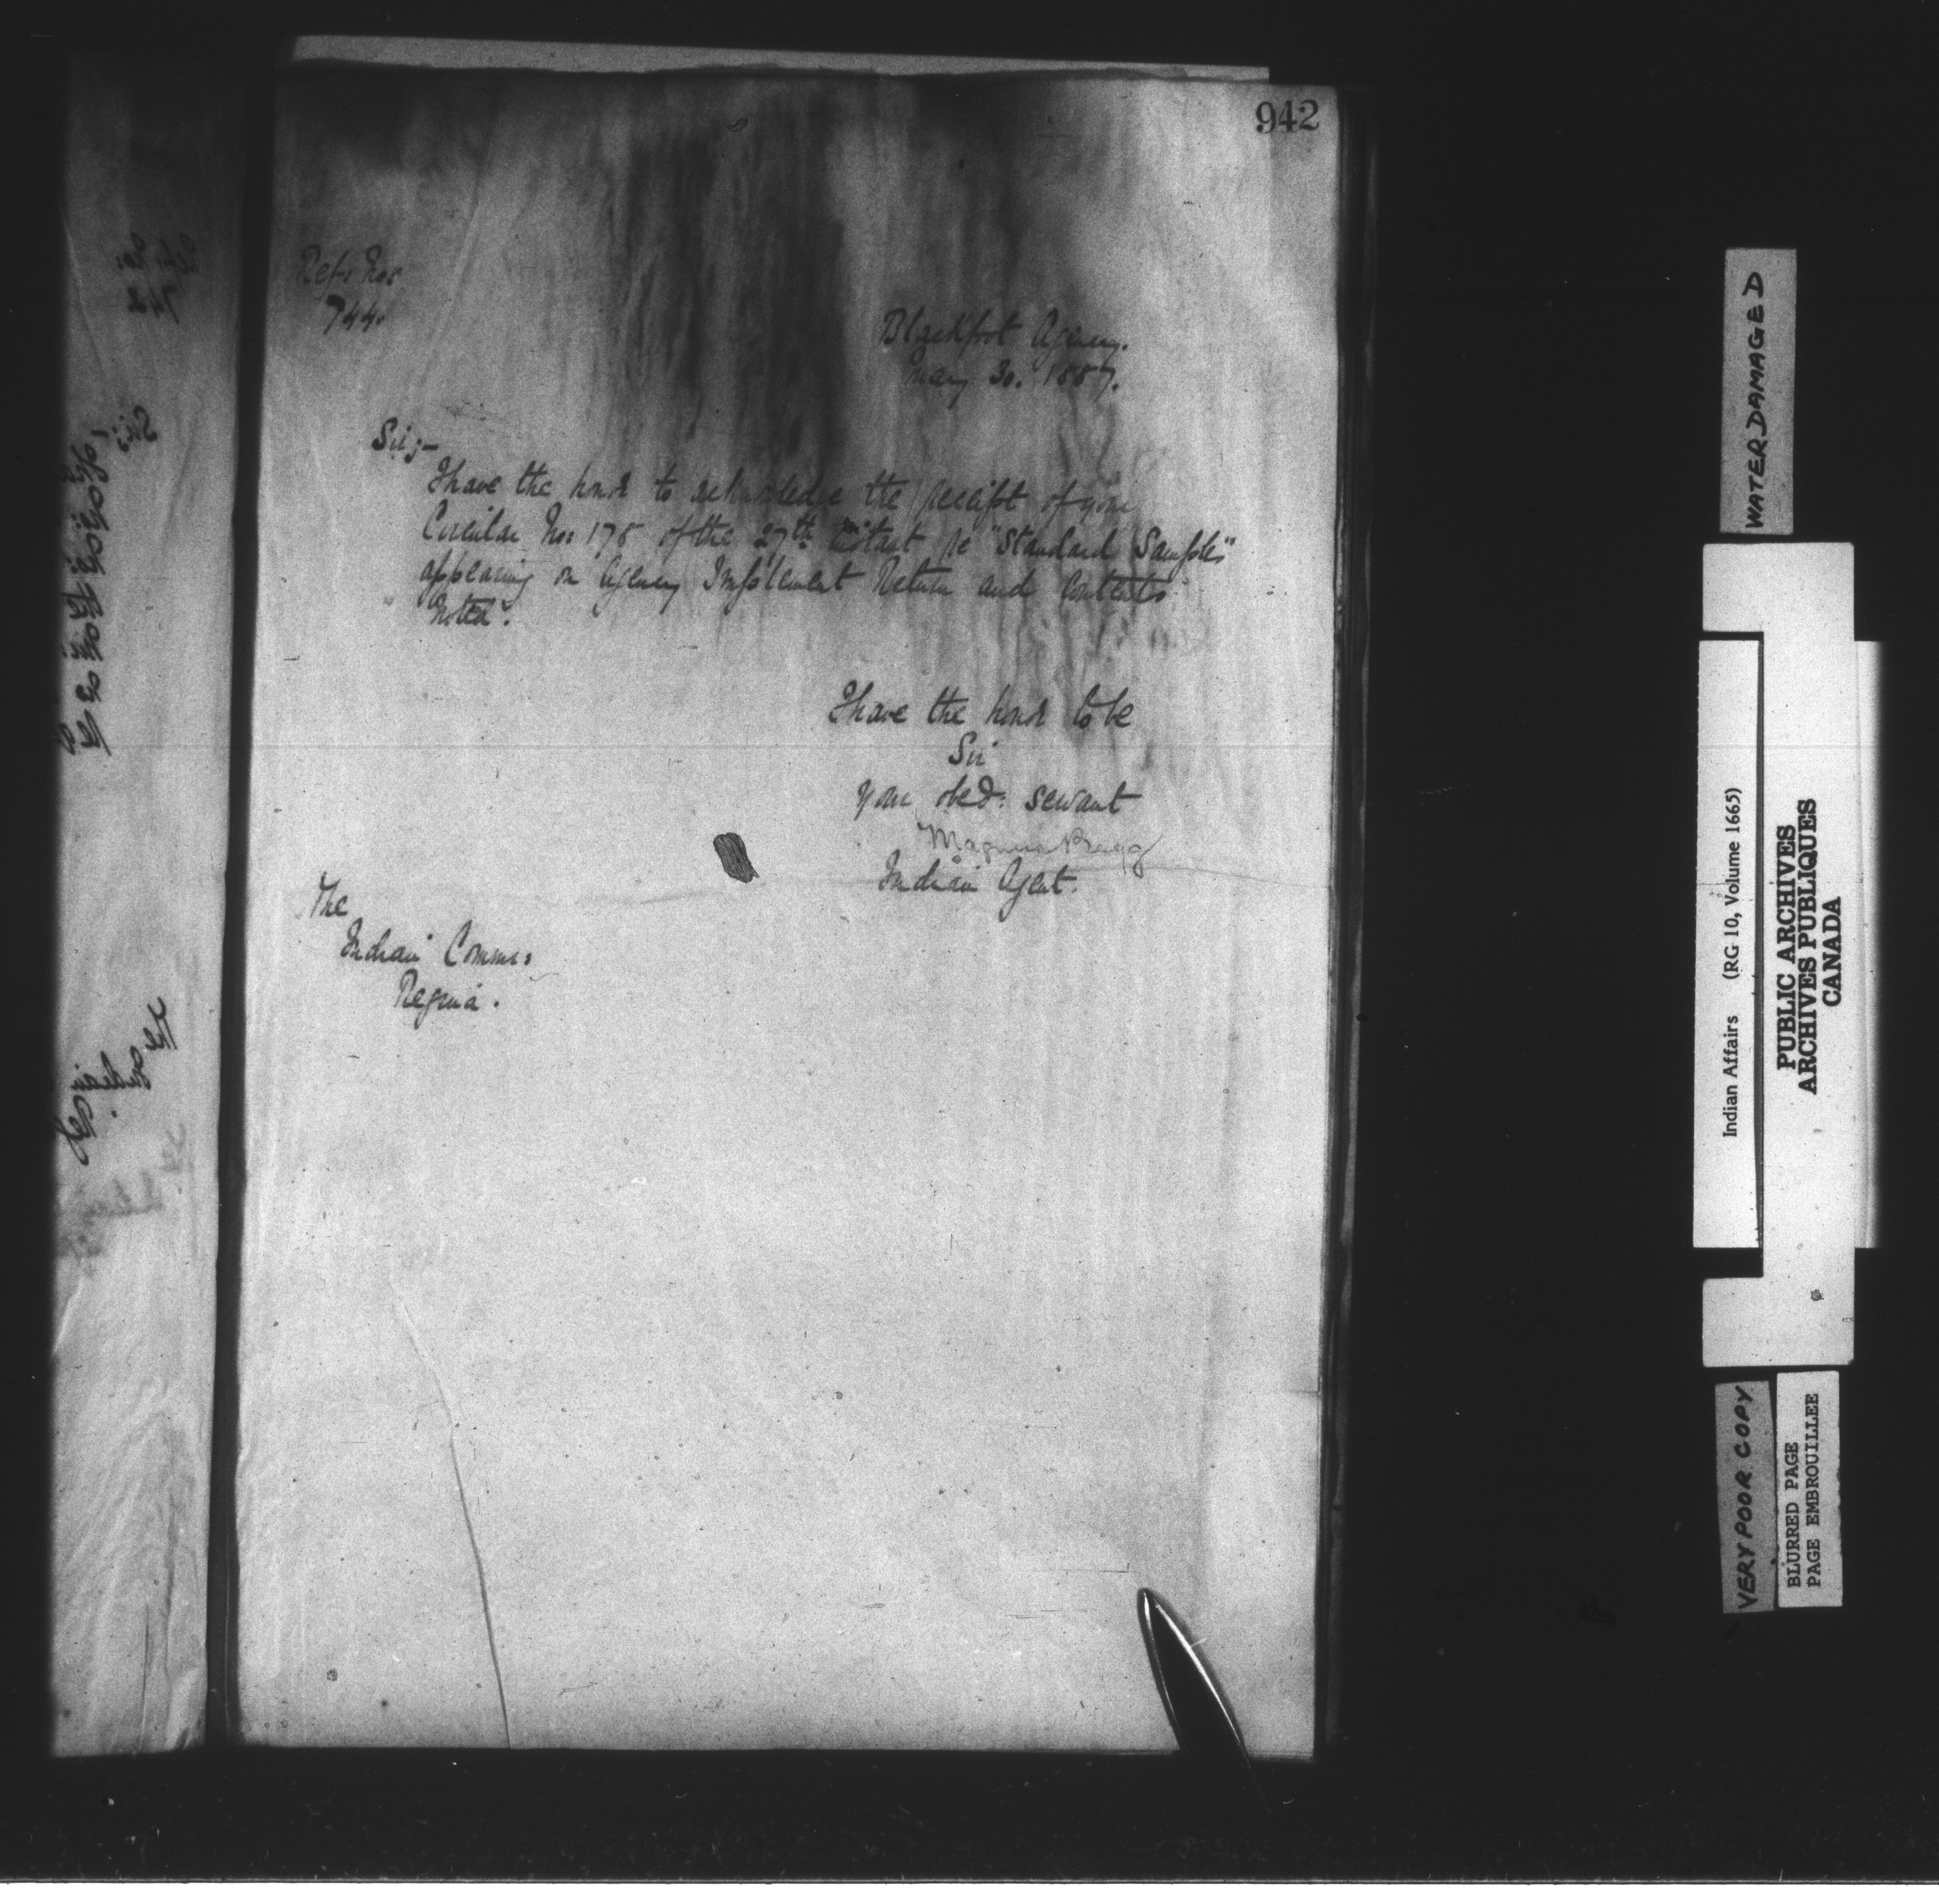 942
Ref: No:
744.
Blackfoot Agency.
May 30. 1887.
Sir;-
I have the honor to acknowledge the receipt of your
Circular No: 178 of the 27th instant re "Standard Samples"
appearing on Agency Implement Return and contents
noted.
I have the honor to be
Sir
Your obed: servant
Magnus Begg
Indian Agent.
The
Indian Commr:
Regina.
WATER DAMAGED
Indian Affairs (RG 10, Volume 1665)
PUBLIC ARCHIVES
ARCHIVES PUBLIQUES
CANADA
VERY POOR COPY
BLURRED PAGE
PAGE EMBROUILLEE